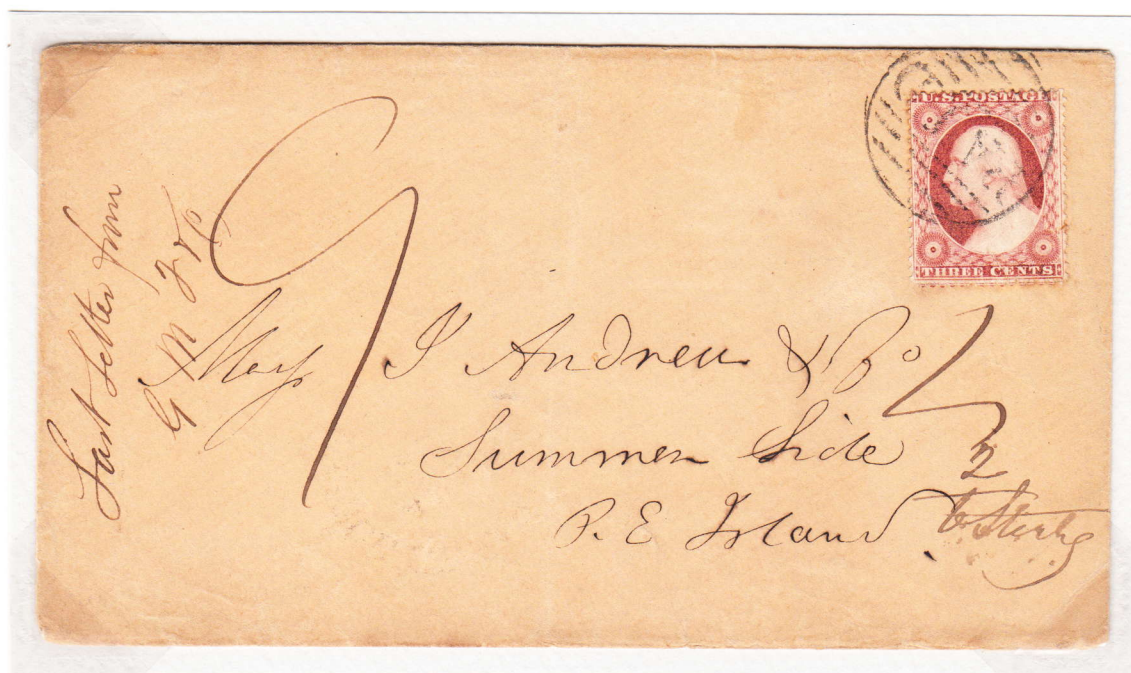 U.S. POSTAGE
THREE CENTS
Last Letter from
G M & Co
9
Mess J Andrew & Bro
Summer Side
P. E Island
2